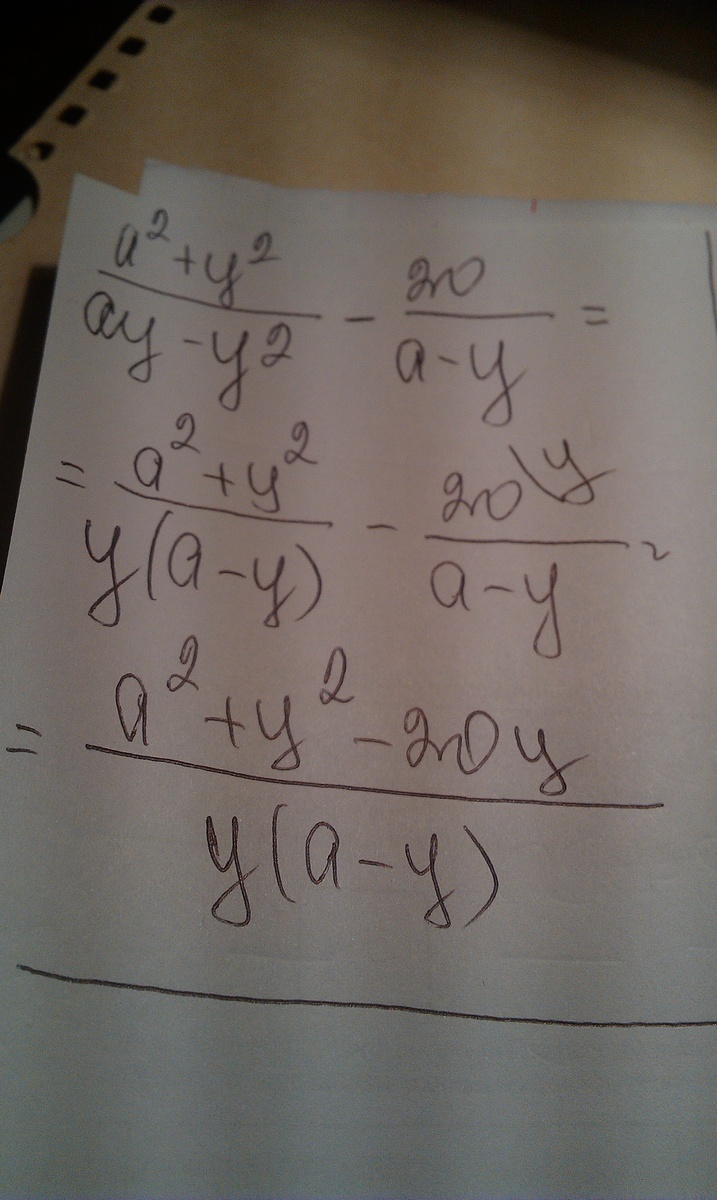 (a² + y²)/(ay - y²) - 20/(a - y) =
= (a² + y²)/(y(a - y)) - 20\y/(a - y) =
= (a² + y² - 20y)/(y(a - y))